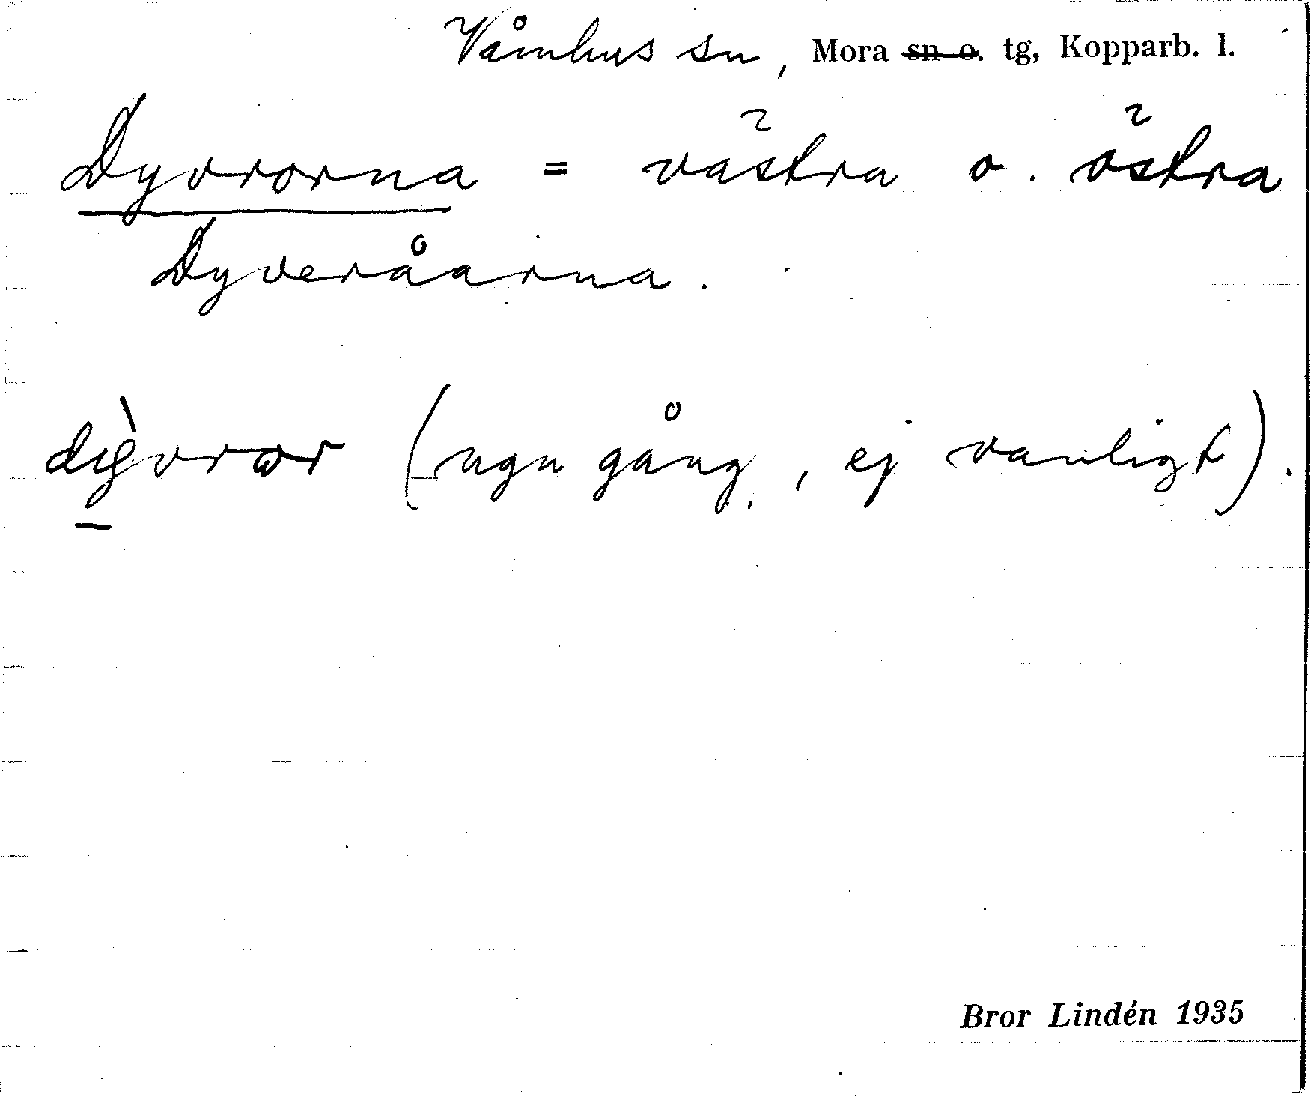 Våmhus sn, Mora sn o. tg, Kopparb. l.
Dyvrorna = västra o. östra
Dyveråarna.
dỳvror (ngn gång, ej vanligt).
Bror Lindén 1935